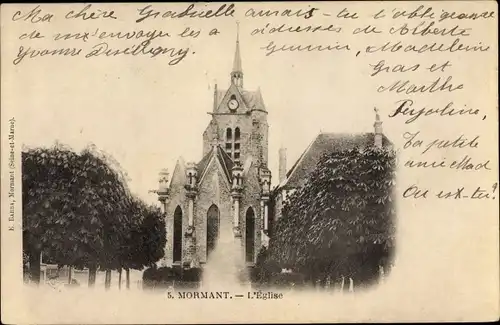 Ma chère Gabrielle aurais-tu l'obligeance
de m'envoyer les adresses de Alberte
Yvonne Germain, Madeleine
Gras et
Marthe
Ta petite
amie Mad
Où es-tu?
E. Barra, Mormant (Seine-et-Marne).
5. MORMANT. — L'Église